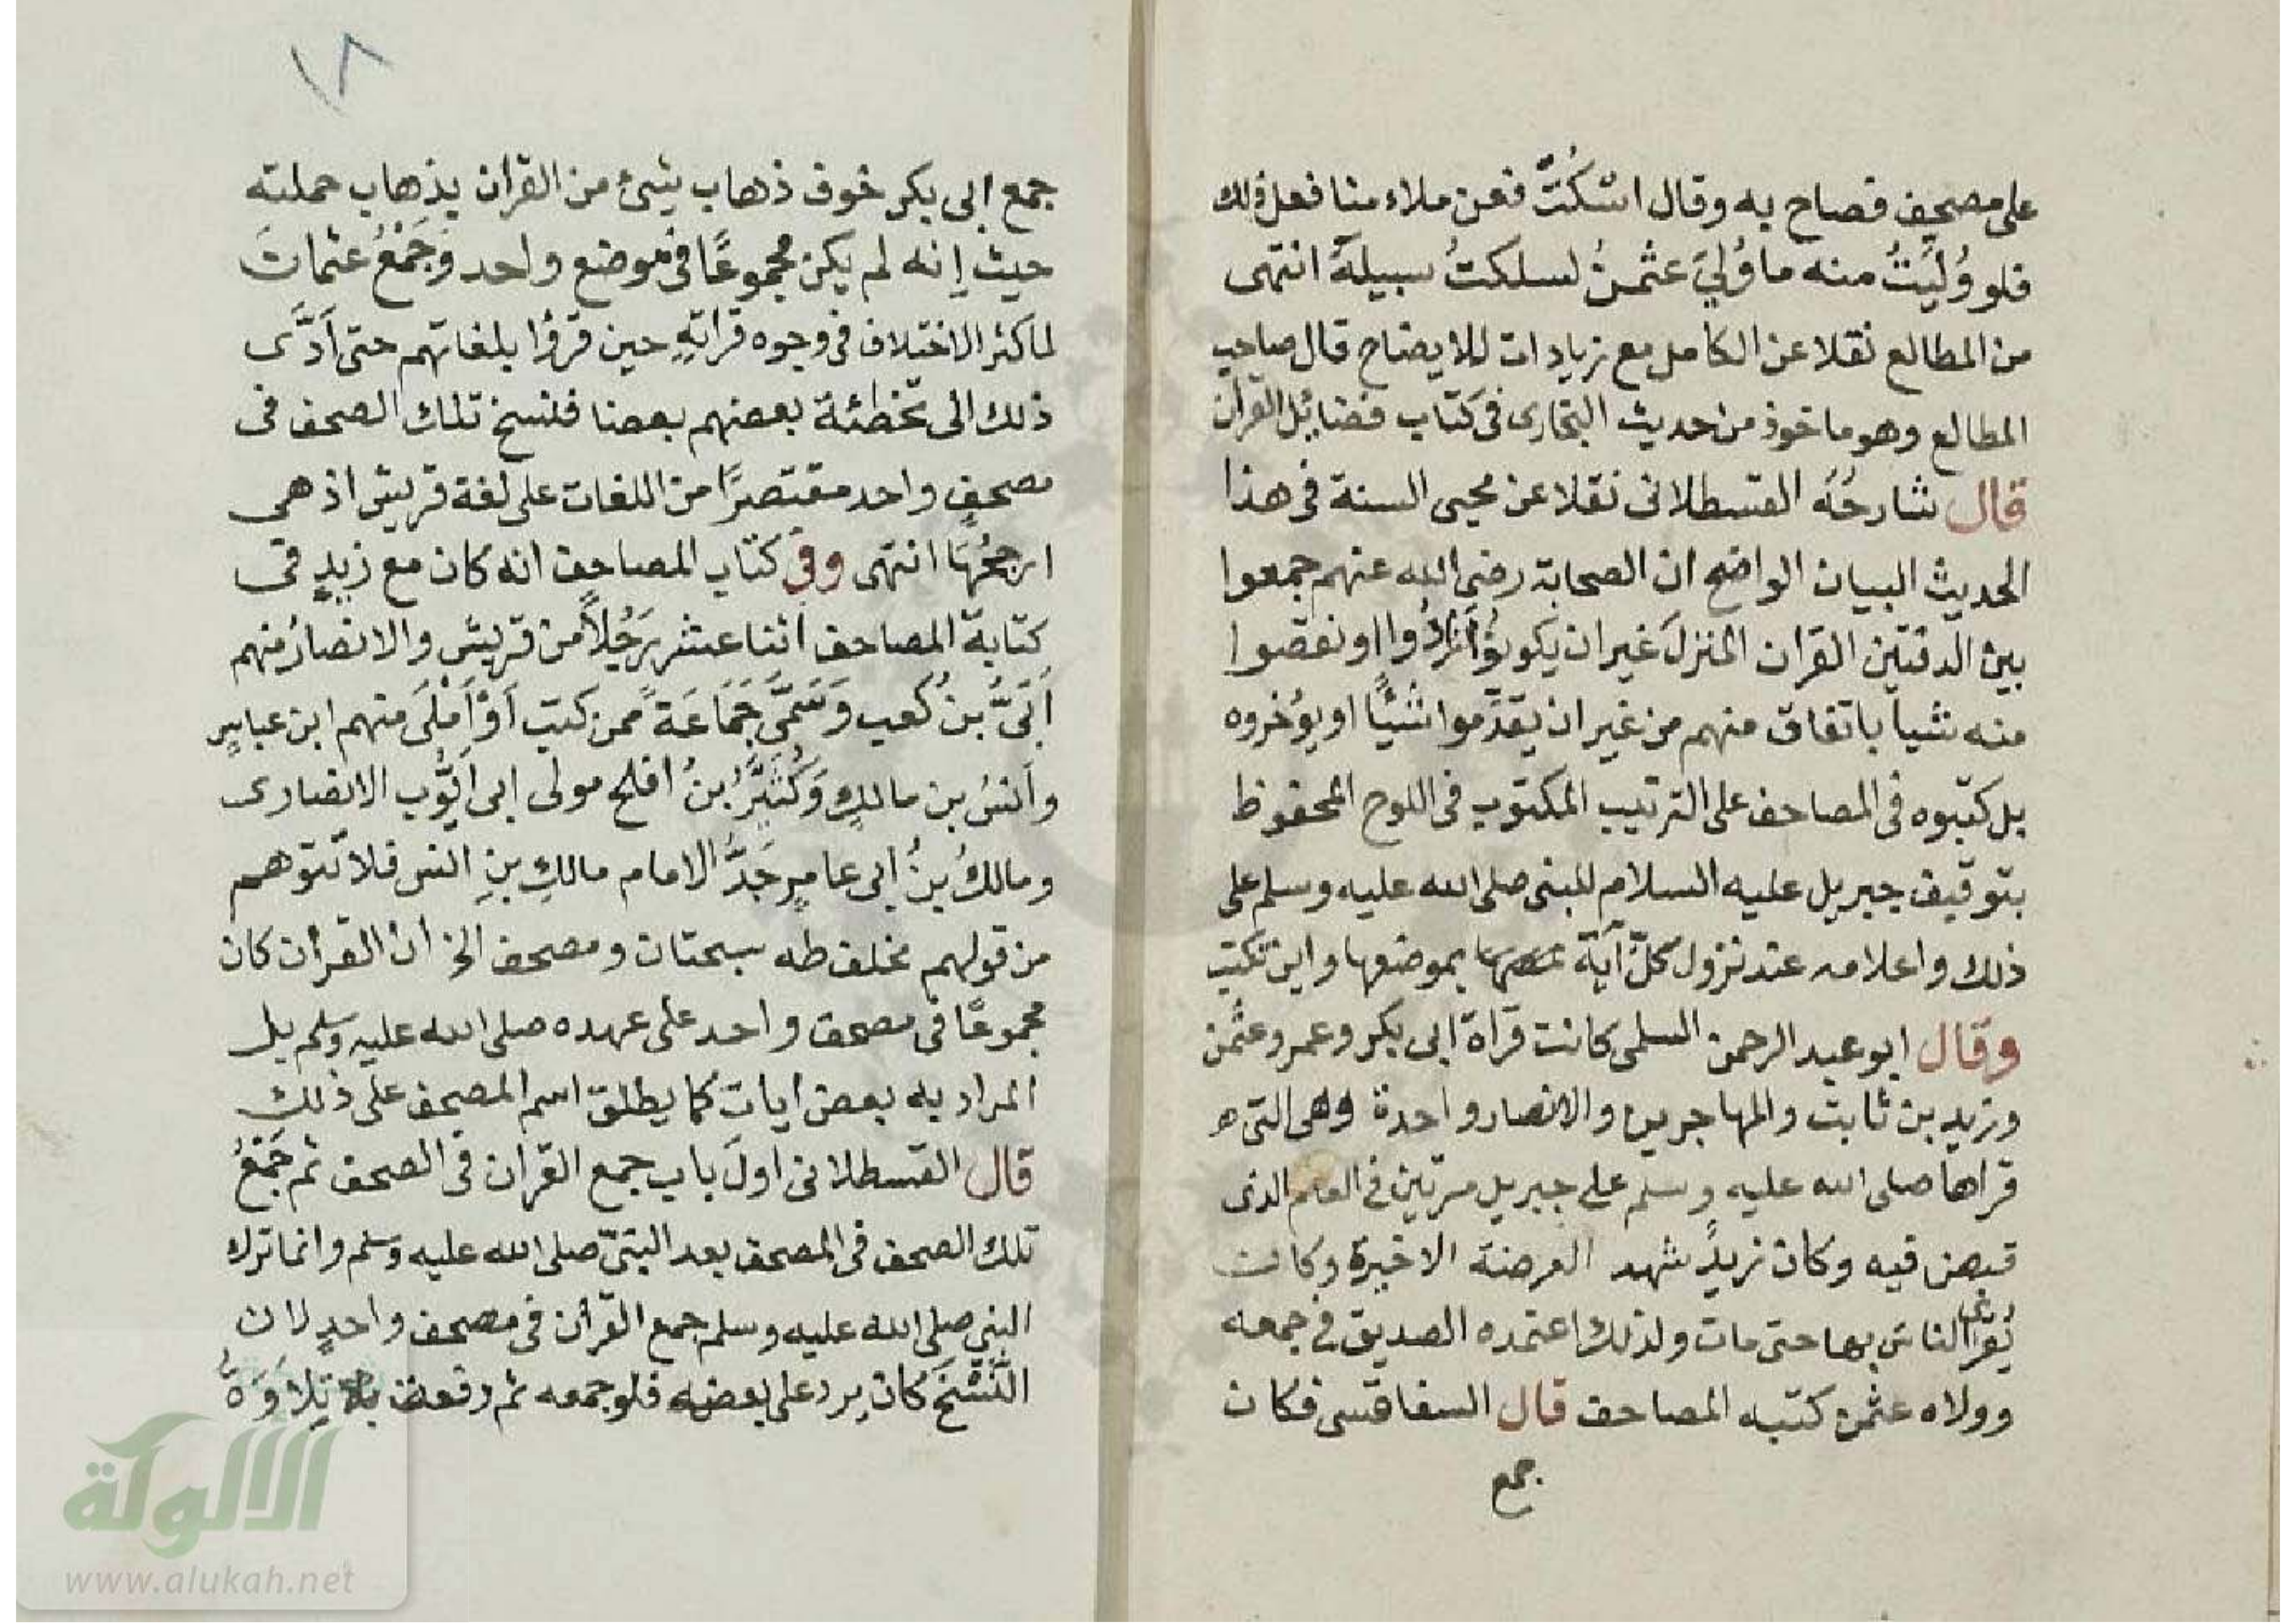 على مصحف فصاح به وقال اسْكُتْ فعن ملاء منا فعل ذلك
فلو وُلِّيتُ منه ما وُلِيَ عثمنُ لسلكتُ سبيلهُ انتهى
من المطالع نقلا عن الكامل مع زيادات للايضاح قال صاحب
المطالع وهو ماخوذ من حديث البخارى فى كتاب فضائل القرآن
قال شارحُهُ القسطلانى نقلا عن محيى السنة فى هذا
الحديث البيان الواضح ان الصحابة رضى الله عنهم جمعوا
بين الدفتين القران المنزلَ غير ان يكونوا زادُوا او نقصوا
منه شيا باتفاق منهم من غير ان يقدّموا شيًا او يؤخروه
بل كتبوه فى المصاحف على الترتيب المكتوب فى اللوح المحفوظ
بتوقيف جبريل عليه السلام للنبى صلى الله عليه وسلم على
ذلك واعلامه عند نزول كلّ آية بموضعها واين تكتب
وقال ابو عبد الرحمن السلمى كانت قراة ابى بكر وعمر وعثمن
وزيد بن ثابت والمهاجرين والانصار واحدة وهى التى
قراها صلى الله عليه وسلم على جبريل مرتين فى العام الذى
قبض فيه وكان زيدٌ شهد العرضة الاخيرة وكان
يُقرئ الناس بها حتى مات ولذلك اعتمده الصديق فى جمعه
وولاه عثمن كتبه المصاحف قال السفاقسى فكان
جمع
١٨
جمع ابى بكر خوف ذهاب شىئ من القرآن بذهاب حملته
حيث إنه لم يكن مجموعًا فى موضع واحد وَجَمْعُ عثمانَ
لما كثر الاختلاف فى وجوه قراتهِ حين قرؤا بلغاتهم حتى اَدَّى
ذلك الى تخطئة بعضهم بعضا فلنسخ تلك الصحف فى
مصحفٍ واحد مقتصرًا من اللغات على لغة قريش اذ هى
ارجحُهَا انتهى وفى كتاب المصاحف انه كان مع زيدٍ فى
كتابة المصاحف اثنا عشر رَجُلاً من قريش والانصارُ منهم
اُبَىُّ بنُ كعب وَسَمَّى جَمَاعَةً ممن كتب اَوْ اَمْلَى منهم ابن عباسٍ
واَنسُ بن مالكٍ وَكُثَيِّرُ بنُ افلح مولى ابى اَيُّوب الانصارى
ومالكُ بنُ ابى عامرٍ جَدُّ الامام مالكِ بنِ انس فلا تتوهم
من قولهم مخلف طه سبحتان ومصحف الخ ان القرآن كان
مجموعًا فى مصحف واحد على عهده صلى الله عليه وسلم بل
المراد به بعض ايات كما يطلق اسم المصحف على ذلك
قال القسطلانى اولَ باب جمع القران فى الصحف ثم جَمْعُ
تلك الصحف فى المصحف بعد النبىّ صلى الله عليه وسلم وانما ترك
النبى صلى الله عليه وسلم جمع القرآن فى مصحف واحدٍ لان
النَّسْخَ كان يرد على بعضه فلو جمعه ثم رفعت تِلاَوَةُ
الألوكة
www.alukah.net